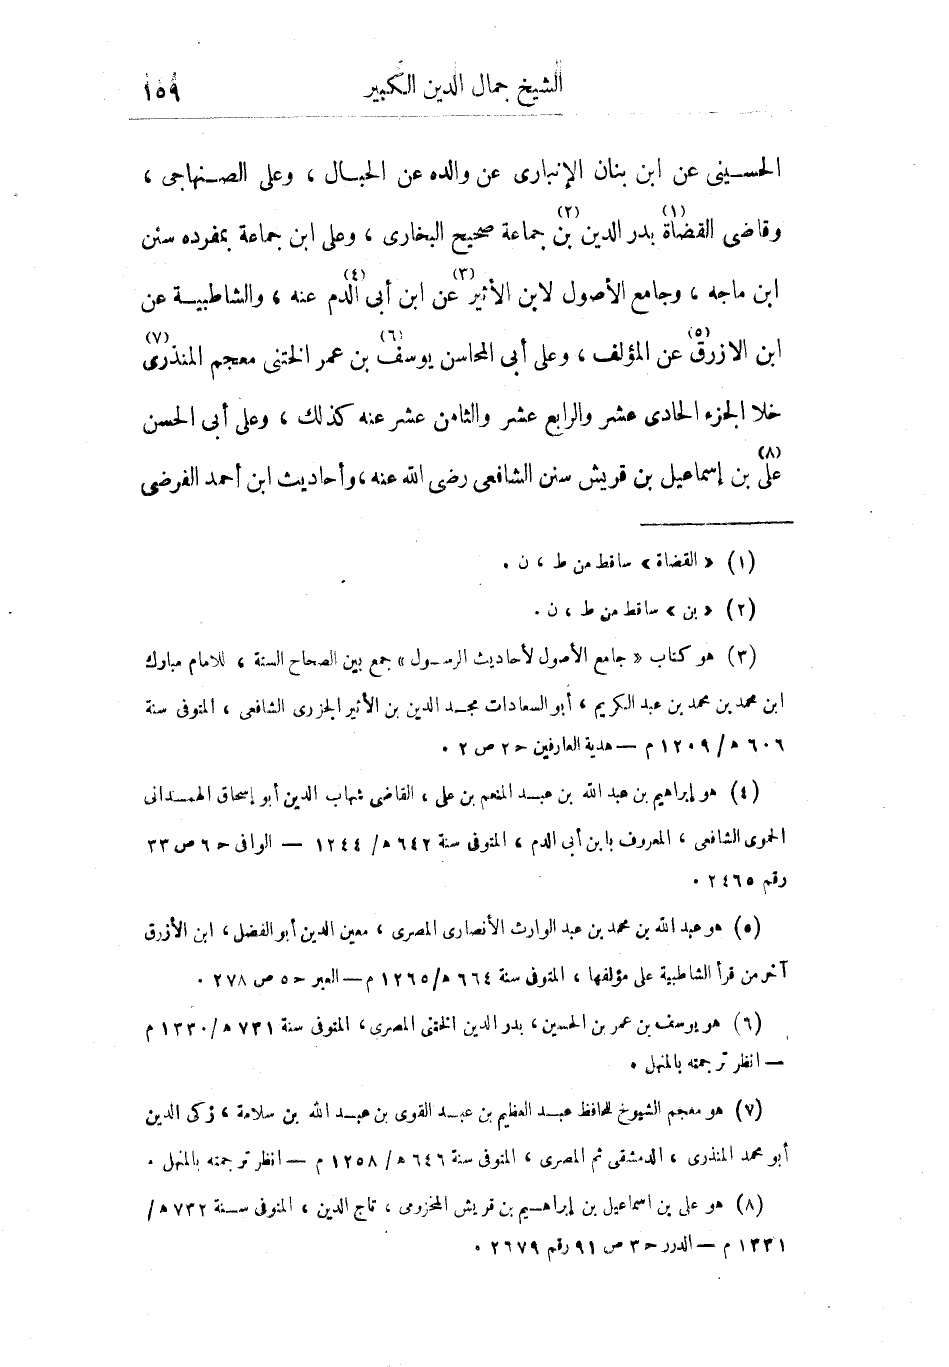 الشيخ جمال الدين الكبير ١٥٩
الحسينى عن ابن بنان الإنبارى عن والده عن الحبال ، وعلى الصنهاجى ،
وقاضى القضاة (١) بدر الدين بن (٢) جماعة صحيح البخارى ، وعلى ابن جماعة بمفرده سنن
ابن ماجه ، وجامع الأصول لابن الأثير (٣) عن ابن أبى الدم (٤) عنه ، والشاطبية عن
ابن الازرق (٥) عن المؤلف ، وعلى أبى المحاسن يوسف (٦) بن عمر الختنى معجم المنذرى (٧)
خلا الجزء الحادى عشر والرابع عشر والثامن عشر عنه كذلك ، وعلى أبى الحسن
على (٨) بن إسماعيل بن قريش سنن الشافعى رضى الله عنه ، وأحاديث ابن أحمد الفرضى
(١) « القضاة » ساقط من ط ، ن .
(٢) « بن » ساقط من ط ، ن .
(٣) هو كتاب « جامع الأصول لأحاديث الرسول » جمع بين الصحاح الستة ، للامام مبارك
ابن محمد بن محمد بن عبد الكريم ، أبو السعادات مجد الدين بن الأثير الجزرى الشافعى ، المتوفى سنة
٦٠٦ ه/ ١٢٠٩ م — هدية العارفين ح ٢ ص ٢ .
(٤) هو إبراهيم بن عبد الله بن عبد المنعم بن على ، القاضى شهاب الدين أبو إسحاق الهمدانى
الحموى الشافعى ، المعروف بابن أبى الدم ، المتوفى سنة ٦٤٢ ه/ ١٢٤٤ — الوافى ح ٦ ص ٣٣
رقم ٢٤٦٥ .
(٥) هو عبد الله بن محمد بن عبد الوارث الأنصارى المصرى ، معين الدين أبو الفضل ، ابن الأزرق
آخر من قرأ الشاطبية على مؤلفها ، المتوفى سنة ٦٦٤ ه/١٢٦٥ م — العبر ح ٥ ص ٢٧٨ .
(٦) هو يوسف بن عمر بن الحسين ، بدر الدين الختنى المصرى ، المتوفى سنة ٧٣١ ه/١٣٣٠ م
— انظر ترجمته بالمنهل .
(٧) هو معجم الشيوخ للحافظ عبد العظيم بن عبد القوى بن عبد الله بن سلامة ، زكى الدين
أبو محمد المنذرى ، الدمشقى ثم المصرى ، المتوفى سنة ٦٤٦ ه/ ١٢٥٨ م — انظر ترجمته بالمنهل .
(٨) هو على بن اسماعيل بن إبراهيم بن قريش المخزومى ، تاج الدين ، المتوفى سنة ٧٣٢ ه/
١٣٣١ م — الدرر ح ٣ ص ٩١ رقم ٢٦٧٩ .